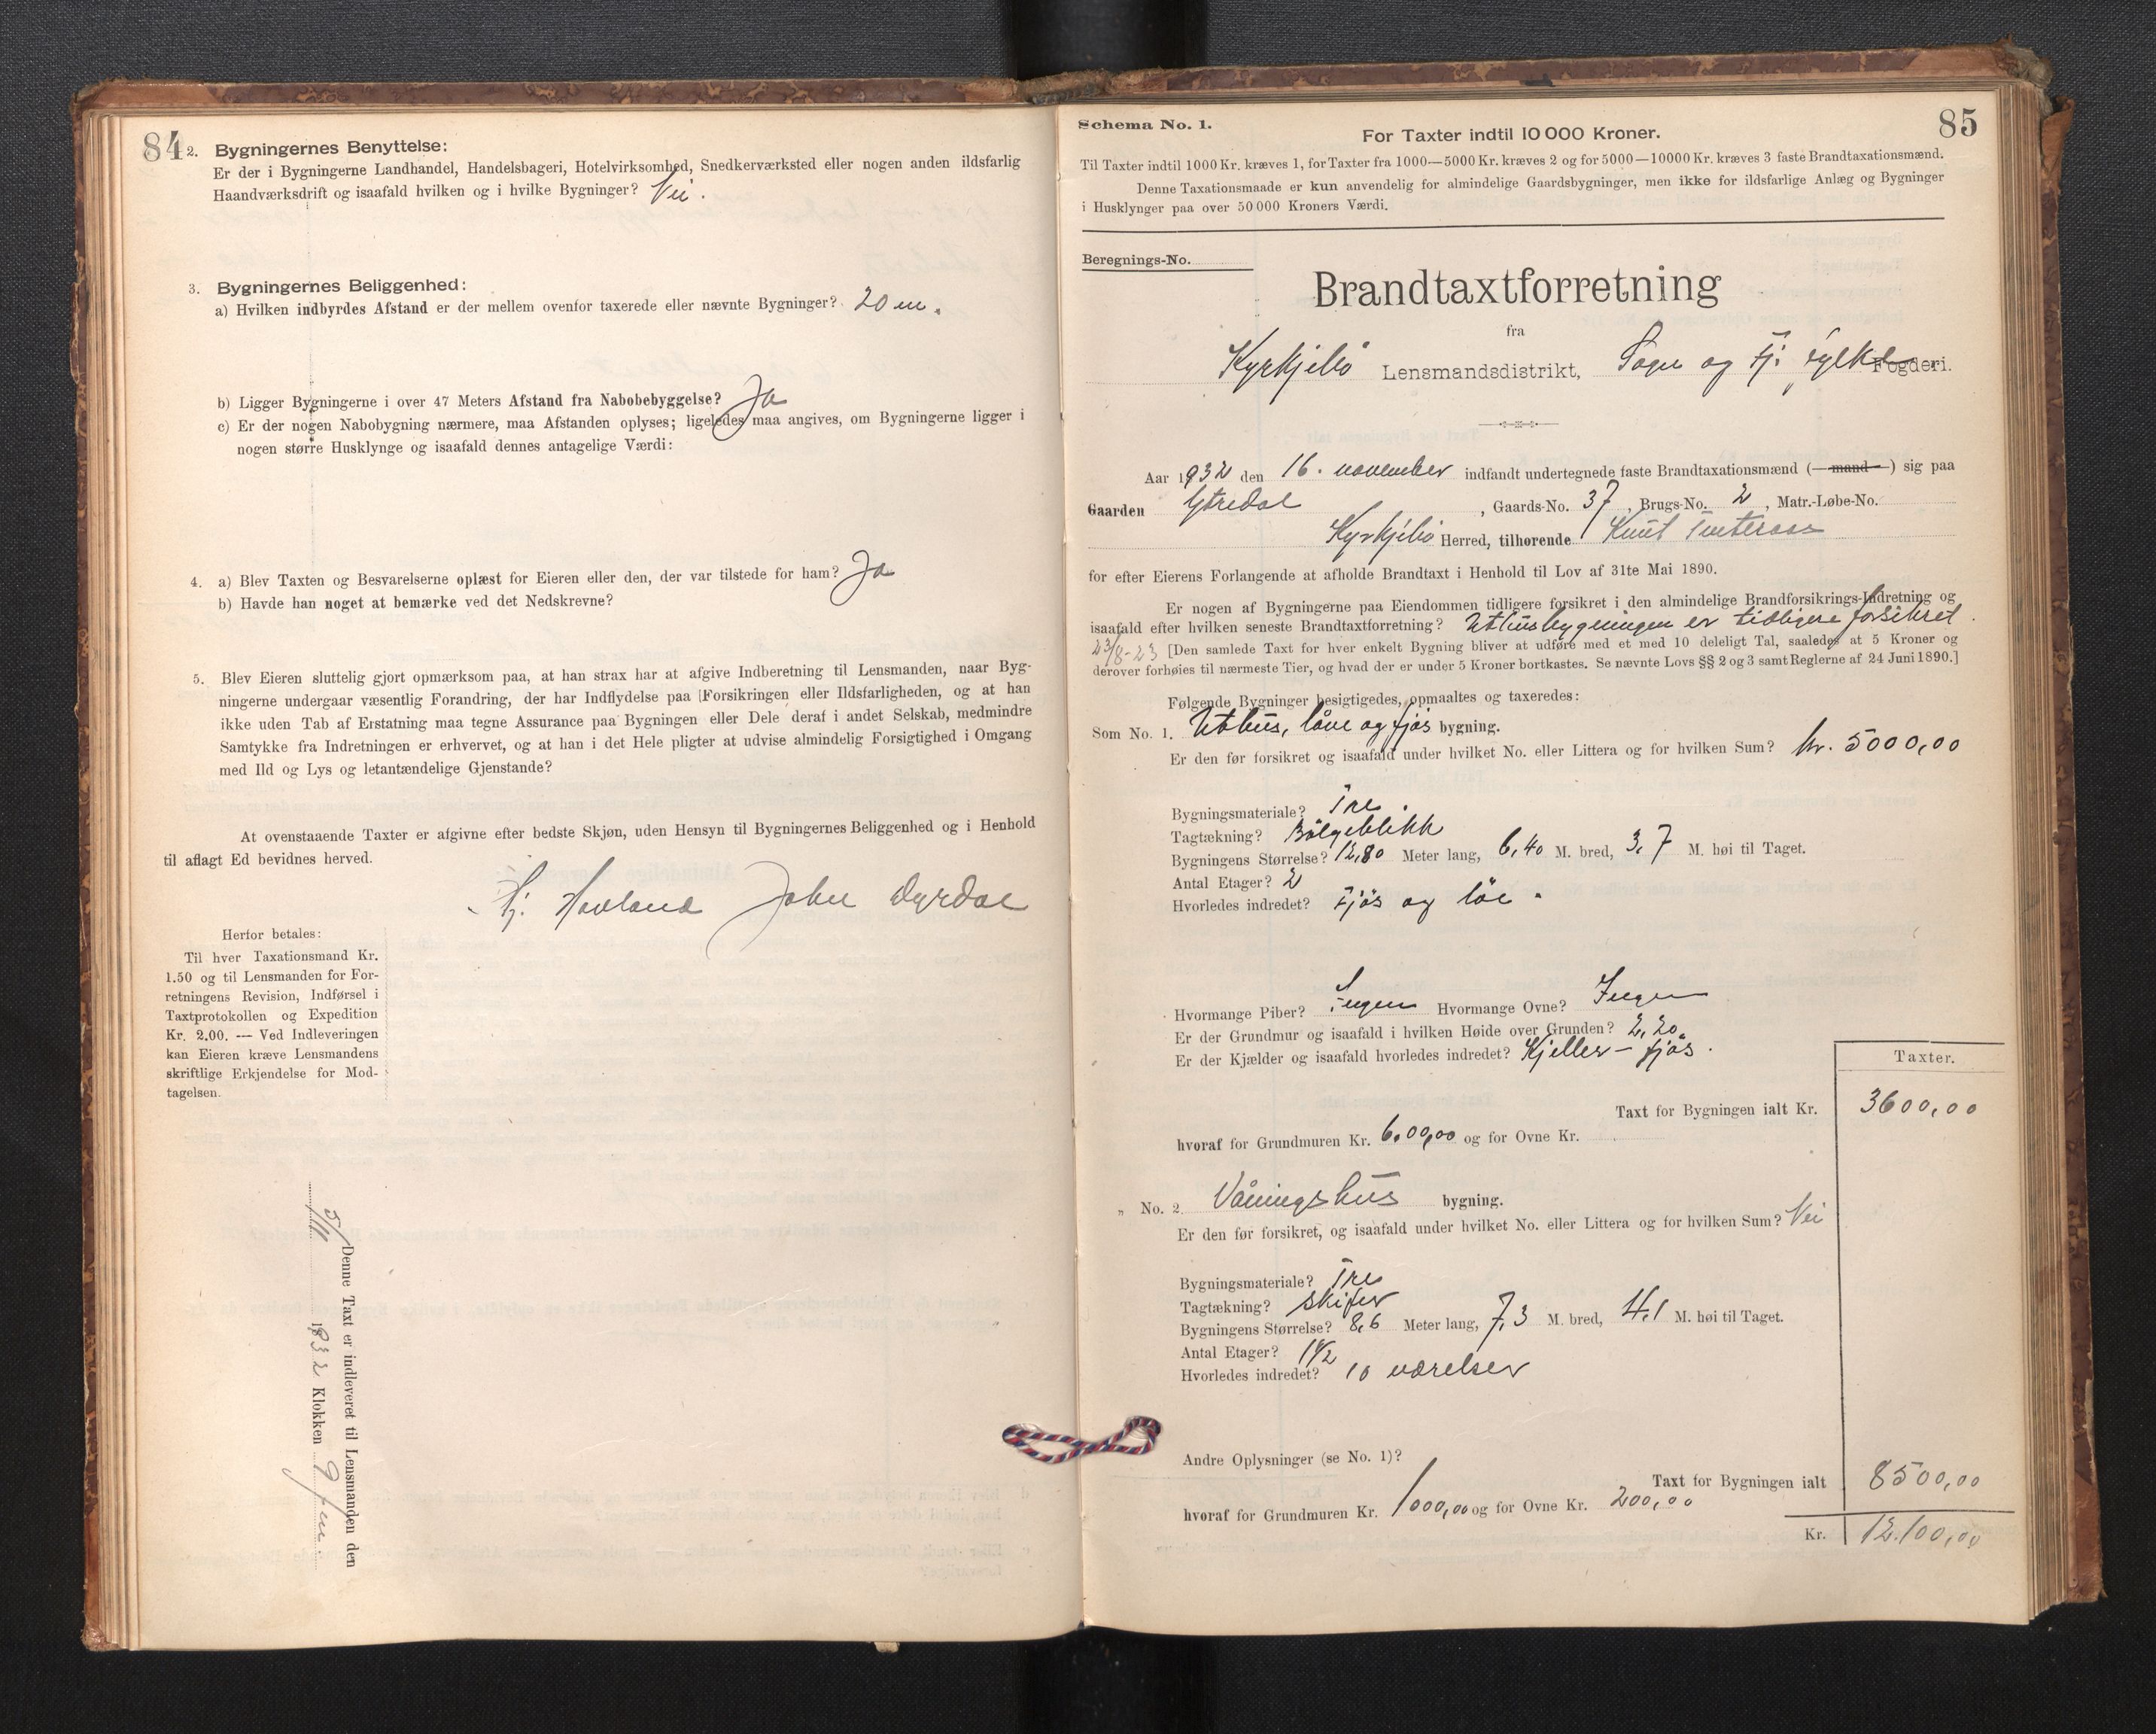 84
2. Bygningernes Benyttelse:
Er der i Bygningerne Landhandel, Handelsbageri, Hotelvirksomhed, Snedkerværksted eller nogen anden ildsfarlig
Haandværksdrift og isaafald hvilken og i hvilke Bygninger? Nei.
3. Bygningernes Beliggenhed:
a) Hvilken indbyrdes Afstand er der mellem ovenfor taxerede eller nævnte Bygninger? 20 m.
b) Ligger Bygningerne i over 47 Meters Afstand fra Nabobebyggelse? Ja
c) Er der nogen Nabobygning nærmere, maa Afstanden oplyses; ligeledes maa angives, om Bygningerne ligger i
nogen større Husklynge og isaafald dennes antagelige Værdi:
4. a) Blev Taxten og Besvarelserne oplæst for Eieren eller den, der var tilstede for ham? Ja
b) Havde han noget at bemærke ved det Nedskrevne?
5. Blev Eieren sluttelig gjort opmærksom paa, at han strax har at afgive Indberetning til Lensmanden, naar Byg-
ningerne undergaar væsentlig Forandring, der har Indflydelse paa Forsikringen eller Ildsfarligheden, og at han
ikke uden Tab af Erstatning maa tegne Assurance paa Bygningen eller Dele deraf i andet Selskab, medmindre
Samtykke fra Indretningen er erhvervet, og at han i det Hele pligter at udvise almindelig Forsigtighed i Omgang
med Ild og Lys og letantændelige Gjenstande?
At ovenstaaende Taxter er afgivne efter bedste Skjøn, uden Hensyn til Bygningernes Beliggenhed og i Henhold
til aflagt Ed bevidnes herved.
Hj. Hovland John Dyrdal
Herfor betales:
Til hver Taxationsmand Kr.
1.50 og til Lensmanden for For-
retningens Revision, Indførsel i
Taxtprotokollen og Expedition
Kr. 2.00. — Ved Indleveringen
kan Eieren kræve Lensmandens
skriftlige Erkjendelse for Mod-
tagelsen.
Denne Taxt er indleveret til Lensmanden den
1932 Klokken 9 fm.
85
Schema No. 1.
For Taxter indtil 10 000 Kroner.
Til Taxter indtil 1000 Kr. kræves 1, for Taxter fra 1000—5000 Kr. kræves 2 og for 5000—10000 Kr. kræves 3 faste Brandtaxationsmænd.
Denne Taxationsmaade er kun anvendelig for almindelige Gaardsbygninger, men ikke for ildsfarlige Anlæg og Bygninger
i Husklynger paa over 50 000 Kroners Værdi.
Beregnings-No.
Brandtaxtforretning
fra
Kyrkjebö Lensmandsdistrikt, Sogn og Fj. fylke Fogderi.
Aar 1932 den 16. november indfandt undertegnede faste Brandtaxationsmænd (—mand—) sig paa
Gaarden Ytredal, Gaards-No. 37, Brugs-No. 2, Matr.-Løbe-No.
Kyrkjebö Herred, tilhørende Knut Tveteraas
for efter Eierens Forlangende at afholde Brandtaxt i Henhold til Lov af 31te Mai 1890.
Er nogen af Bygningerne paa Eiendommen tidligere forsikret i den almindelige Brandforsikrings-Indretning og
isaafald efter hvilken seneste Brandtaxtforretning? Uthusbygningen er tidligere forsikret
23/8-23 [Den samlede Taxt for hver enkelt Bygning bliver at udføre med et med 10 deleligt Tal, saaledes at 5 Kroner og
derover forhøies til nærmeste Tier, og hvad der er under 5 Kroner bortkastes. Se nævnte Lovs §§ 2 og 3 samt Reglerne af 24 Juni 1890.]
Følgende Bygninger besigtigedes, opmaaltes og taxeredes:
Som No. 1. Uthus, låve og fjös bygning.
Er den før forsikret og isaafald under hvilket No. eller Littera og for hvilken Sum? kr. 5000,00
Bygningsmateriale? Tre
Tagtækning? Bölgeblikk
Bygningens Størrelse? 12,80 Meter lang, 6,40 M. bred, 3,7 M. høi til Taget.
Antal Etager? 2
Hvorledes indredet? Fjös og löe.
Hvormange Piber? Ingen Hvormange Ovne? Ingen
Er der Grundmur og isaafald i hvilken Høide over Grunden? 2,20.
Er der Kjælder og isaafald hvorledes indredet? Kjeller-fjös.
Taxter.
Taxt for Bygningen ialt Kr. 3600,00
hvoraf for Grundmuren Kr. 600,00 og for Ovne Kr.
„ No. 2 Våningshus bygning.
Er den før forsikret, og isaafald under hvilket No. eller Littera og for hvilken Sum? Nei
Bygningsmateriale? Tre
Tagtækning? skifer
Bygningens Størrelse? 8,6 Meter lang, 7,3 M. bred, 4,1 M. høi til Taget.
Antal Etager? 1 1/2
Hvorledes indredet? 10 værelser
Andre Oplysninger (se No. 1)?
Taxt for Bygningen ialt 8500,00
hvoraf for Grundmuren Kr. 1000,00 og for Ovne Kr. 200,00
Kr. 12.100,00